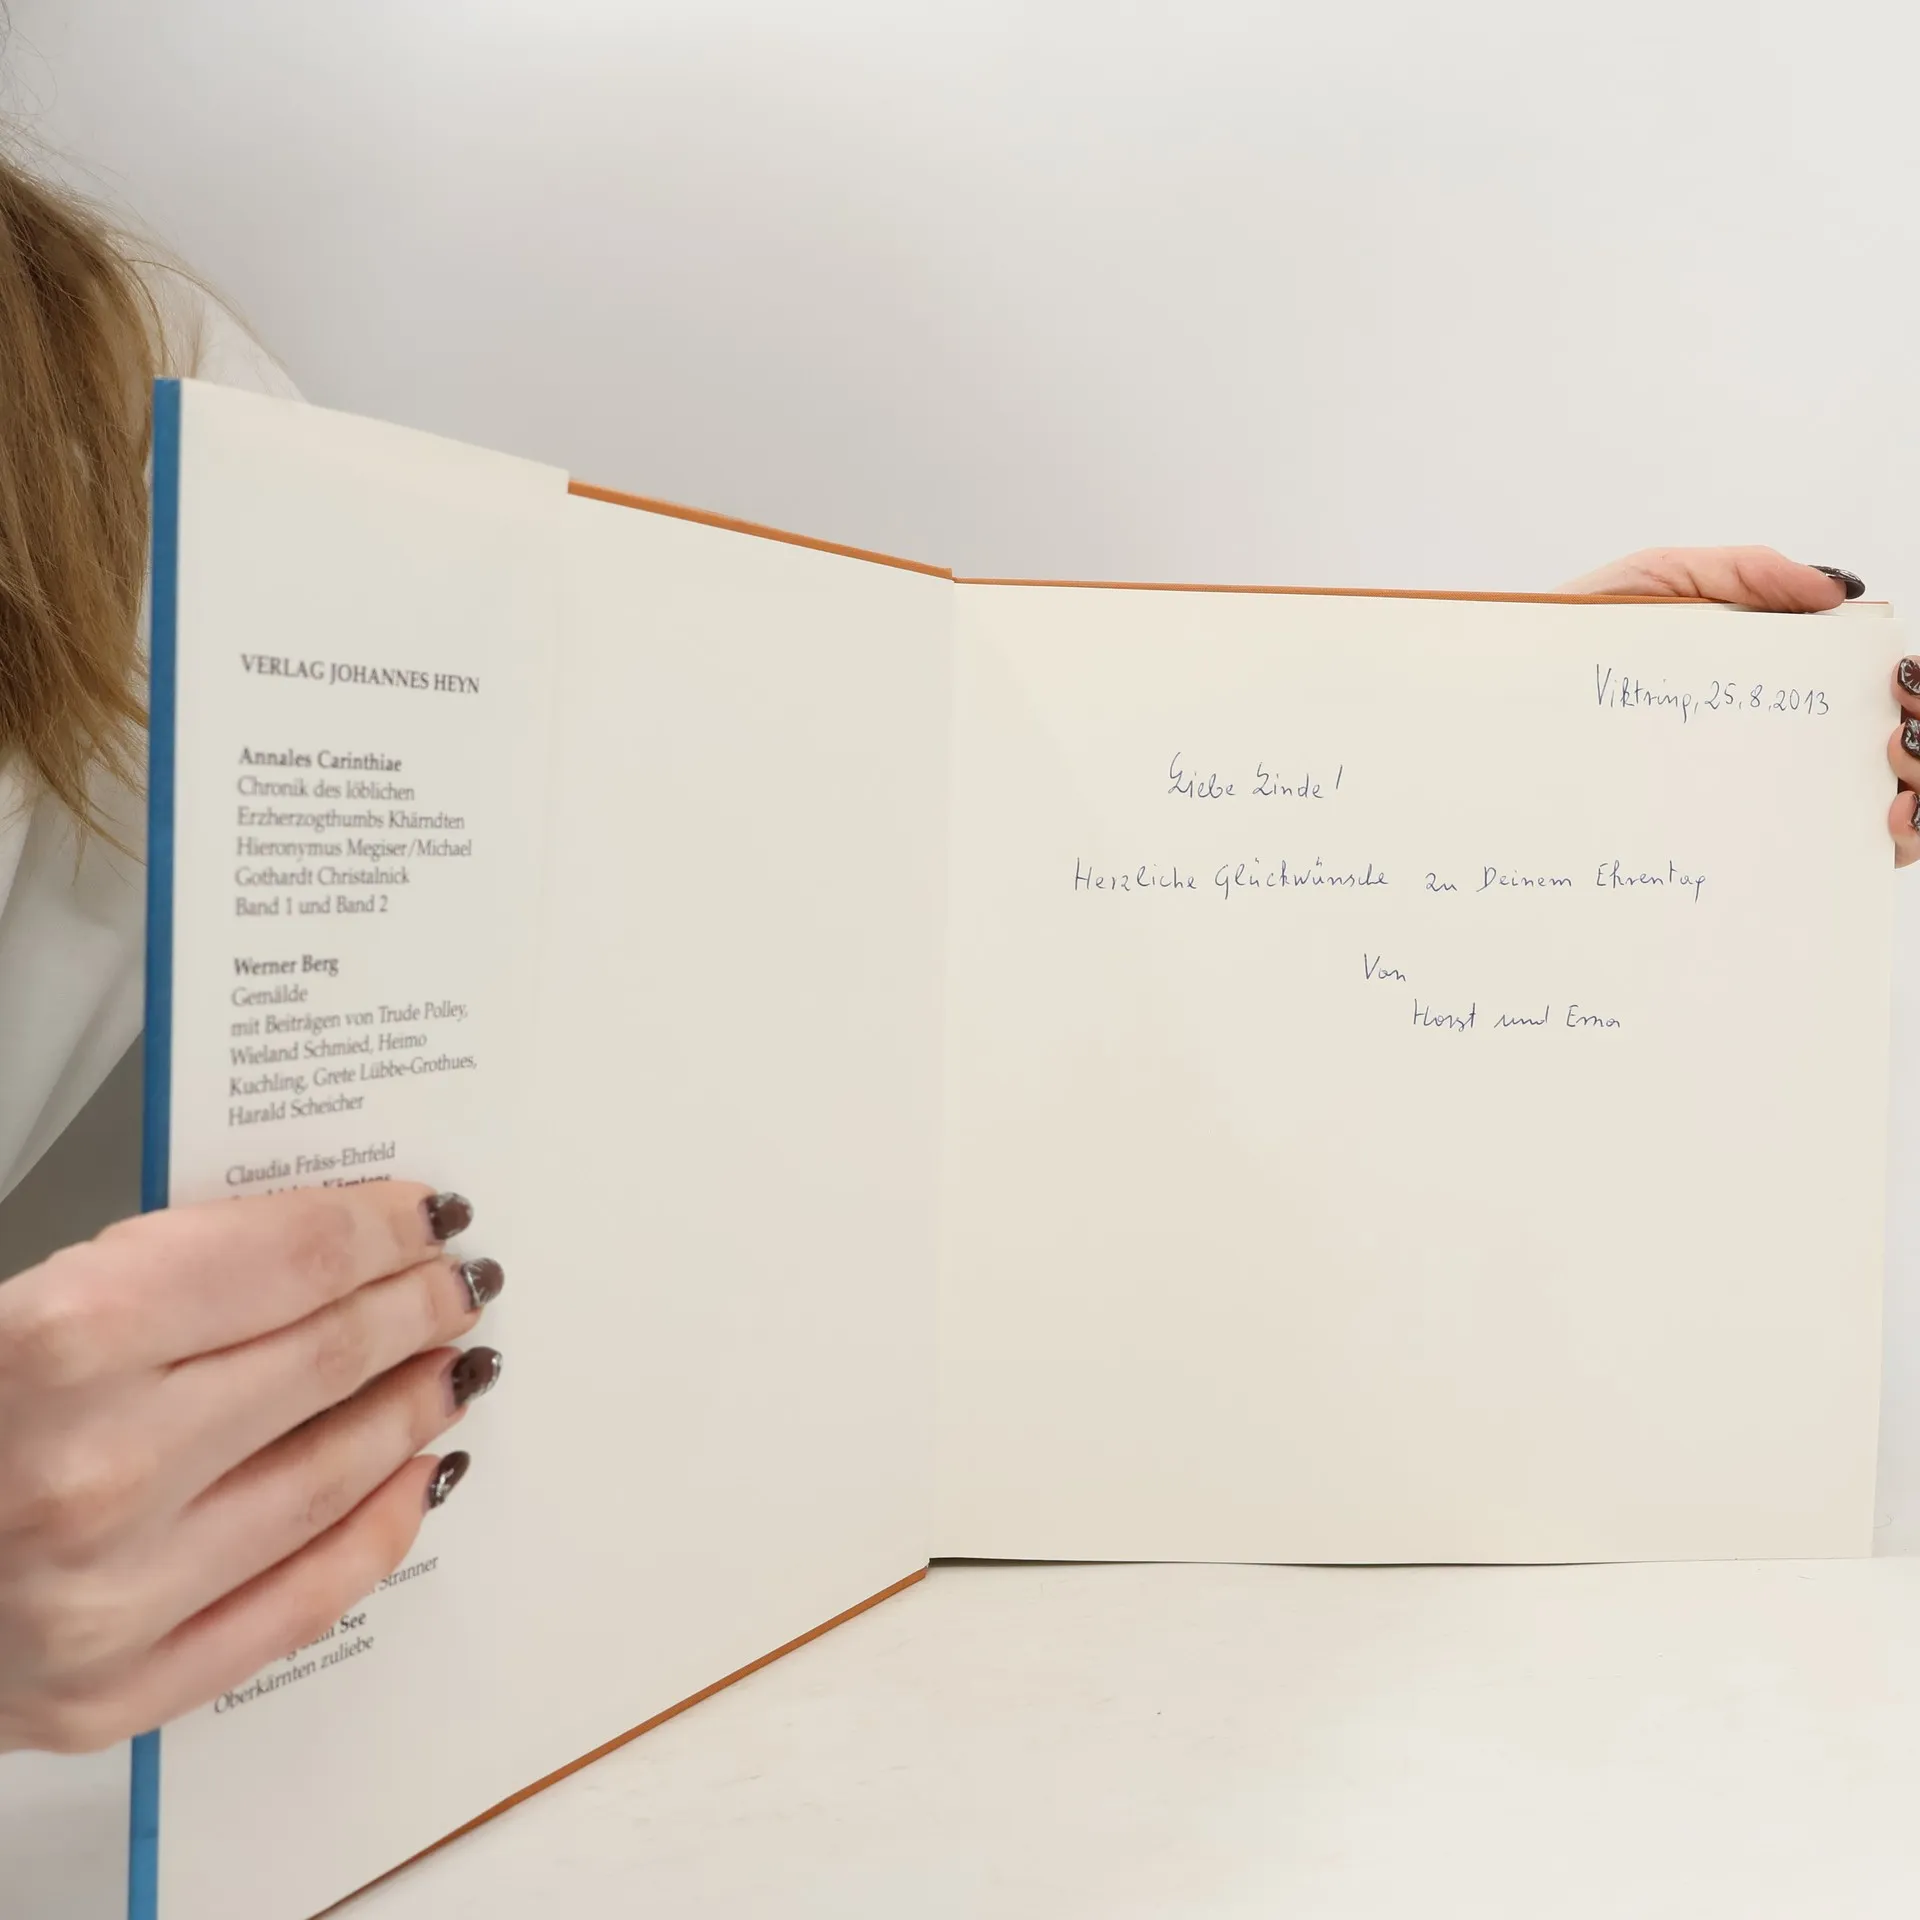 VERLAG JOHANNES HEYN
Annales Carinthiae
Chronik des löblichen
Erzherzogthumbs Khärndten
Hieronymus Megiser/Michael
Gothardt Christalnick
Band 1 und Band 2
Werner Berg
Gemälde
mit Beiträgen von Trude Polley,
Wieland Schmied, Heimo
Kuchling, Grete Lübbe-Grothues,
Harald Scheicher
Claudia Fräss-Ehrfeld
Kärntens
Stranner
See
Oberkärnten zuliebe
Viktring, 25.8.2013
Liebe Linde!
Herzliche Glückwünsche zu Deinem Ehrentag
Von
Horst und Erna